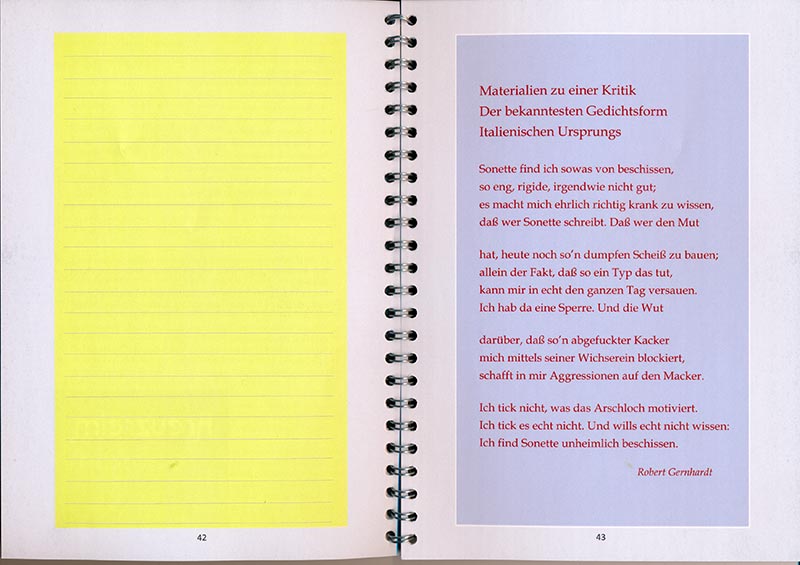 Materialien zu einer Kritik
Der bekanntesten Gedichtsform
Italienischen Ursprungs
Sonette find ich sowas von beschissen,
so eng, rigide, irgendwie nicht gut;
es macht mich ehrlich richtig krank zu wissen,
daß wer Sonette schreibt. Daß wer den Mut
hat, heute noch so'n dumpfen Scheiß zu bauen;
allein der Fakt, daß so ein Typ das tut,
kann mir in echt den ganzen Tag versauen.
Ich hab da eine Sperre. Und die Wut
darüber, daß so'n abgefuckter Kacker
mich mittels seiner Wichserein blockiert,
schafft in mir Aggressionen auf den Macker.
Ich tick nicht, was das Arschloch motiviert.
Ich tick es echt nicht. Und wills echt nicht wissen:
Ich find Sonette unheimlich beschissen.
Robert Gernhardt
42
43